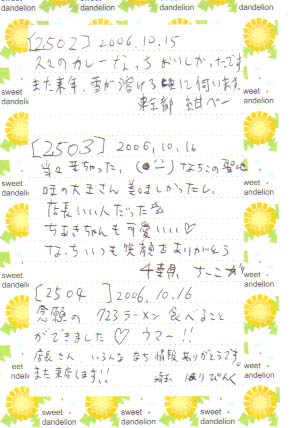 [2502] 2006.10.15
久々のカレーなっち おいしかったです
また来年、雪が溶ける頃に伺います。
東京都 紺ぺー
[2503] 2006.10.16
来ちゃった。 なちこの聖地
味の大王さん 美味しかったし、
店長いい人だった
ちあきちゃんも可愛いい♡
なっちいつも笑顔をありがとう
千葉県
[2504] 2006.10.16
念願の 723ラーメン 食べること
ができました♡ ウマー!!
店長さん、いろんな なち情報 ありがとうです。
また来店します!! ほりぴんく
sweet dandelion